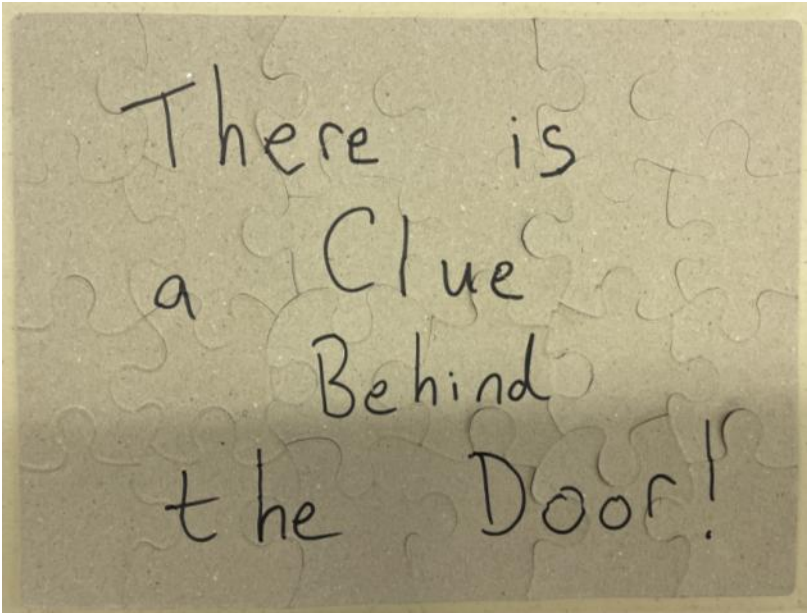 There is
a Clue
Behind
the Door!